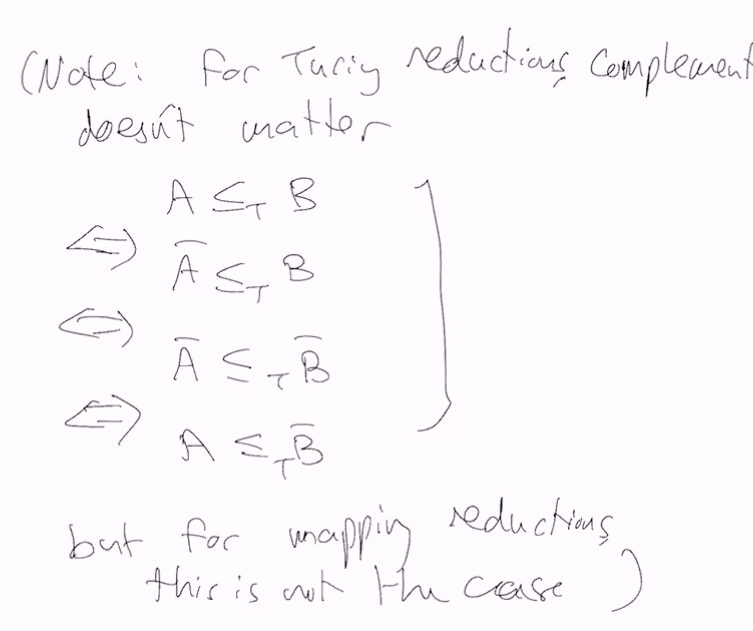 (Note: for Turing reductions complement
doesn't matter
A ≤_T B
⇔ A̅ ≤_T B
⇔ A̅ ≤_T B̅
⇔ A ≤_T B̅
but for mapping reductions
this is not the case)